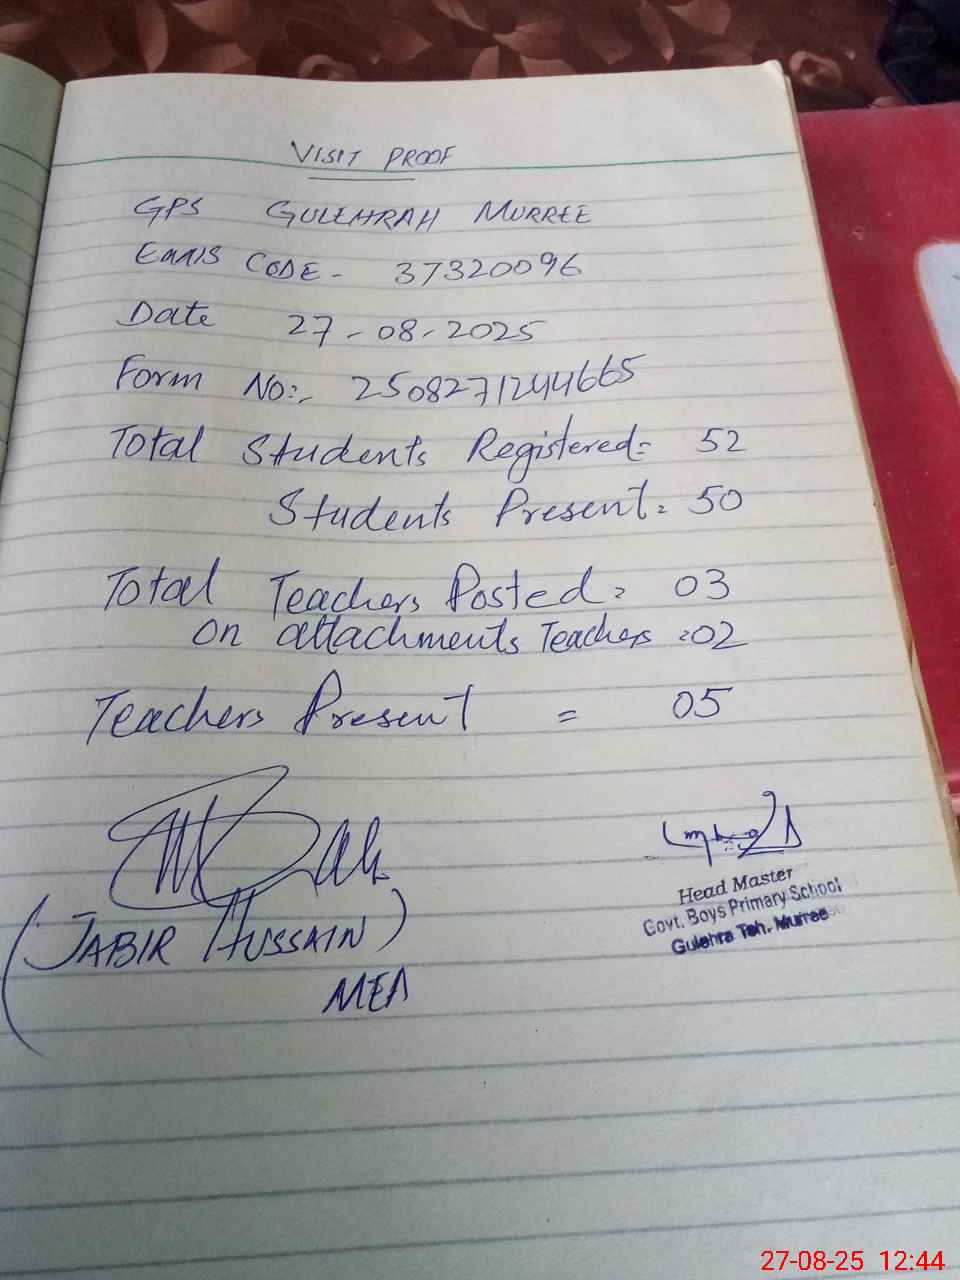 VISIT PROOF
GPS GULEHRAH MURREE
EMIS CODE- 37320096
Date 27-08-2025
Form No:- 2508271244665
Total Students Registered= 52
Students Present= 50
Total Teachers Posted= 03
on attachments Teachers =02
Teachers Present = 05
(JABIR HUSSAIN)
MEA
Head Master
Govt. Boys Primary School
Gulehra Teh. Murree
27-08-25 12:44